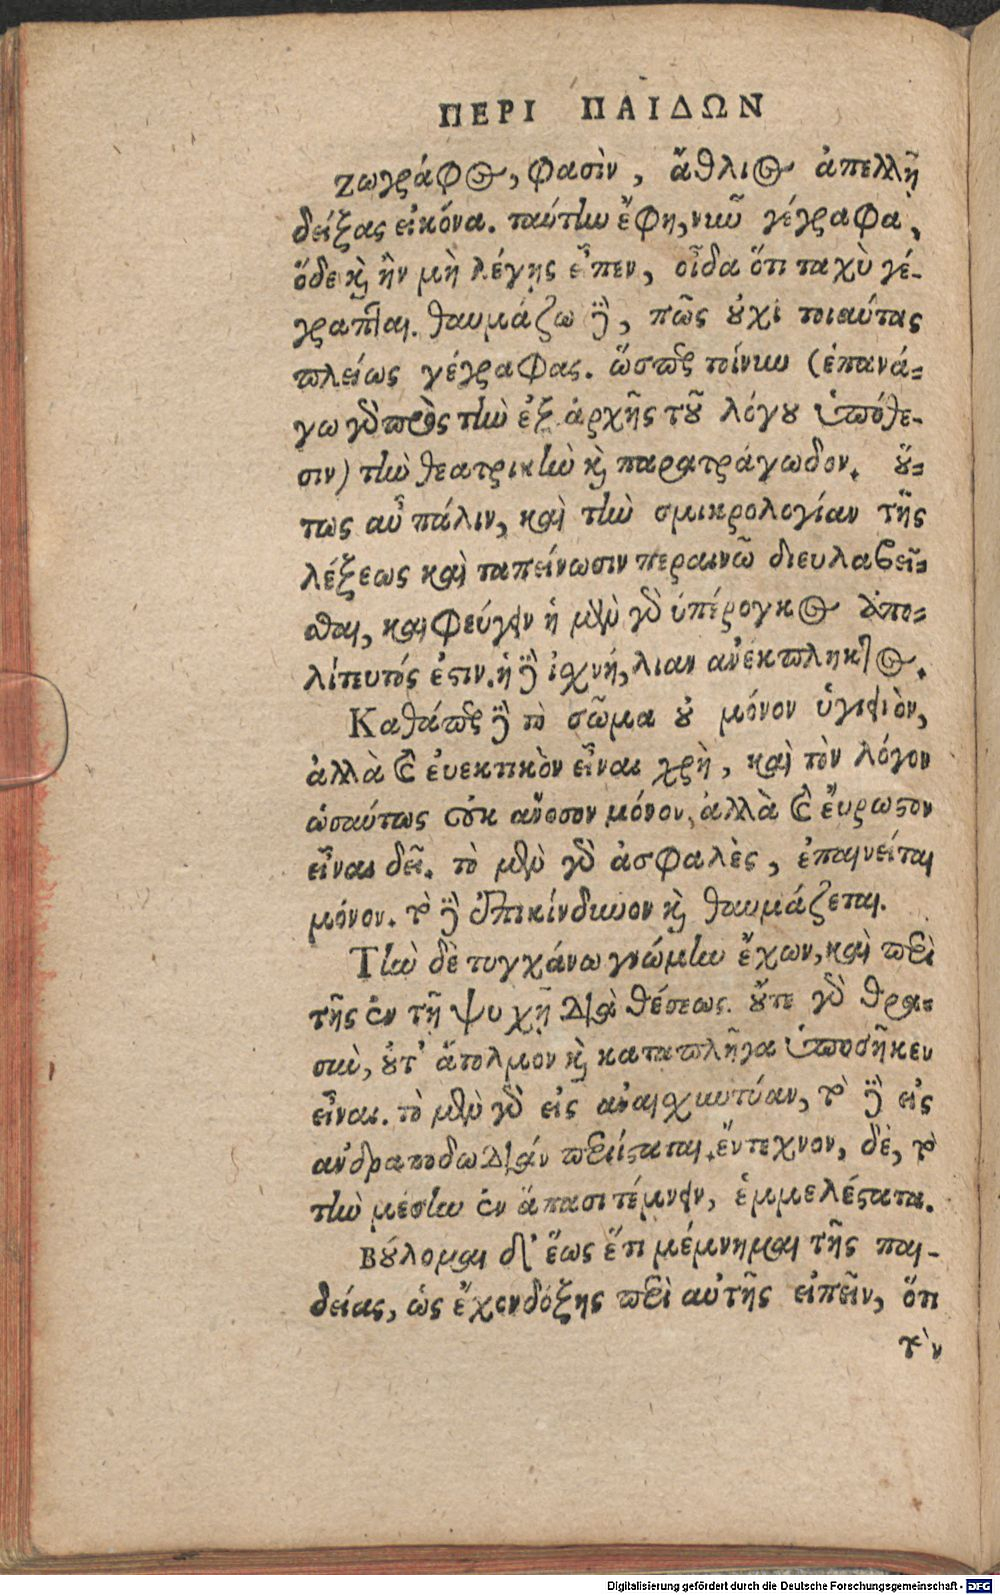 ΠΕΡΙ ΠΑΙΔΩΝ
ζωγράφος, φασὶν, ἄθλιος ἀπελλῇ
δείξας εἰκόνα. ταύτην ἔφη, νῦν γέγραφα,
ὅδε καὶ ἢν μὴ λέγῃς εἶπεν, οἶδα ὅτι ταχὺ γέ-
γραπται. θαυμάζω δὲ, πῶς οὐχὶ τοιαύτας
πλείως γέγραφας. ὥσπερ τοίνυν (ἐπανά-
γω γὰρ πρὸς τὴν ἐξ ἀρχῆς τοῦ λόγου ὑπόθε-
σιν) τὴν θεατρικὴν καὶ παρατράγωδον. οὕ-
τως αὖ πάλιν, καὶ τὴν σμικρολογίαν τῆς
λέξεως καὶ ταπείνωσιν περαινῶ διευλαβεῖ-
σθαι, καὶ φεύγειν ἡ μὲν γὰρ ὑπέρογκος ἀπο-
λίτευτός ἐστιν. ἡ δὲ ἰχνή, λιαν ἀνέκπληκτος.
Καθάπερ δὲ τὸ σῶμα οὐ μόνον ὑγιεινὸν,
ἀλλὰ καὶ ἐυεκτικὸν εἶναι χρὴ, καὶ τὸν λόγον
ὡσαύτως οὐκ ἄνοσον μόνον, ἀλλὰ καὶ ἔυρωστον
εἶναι δεῖ. τὸ μὲν γὰρ ἀσφαλὲς, ἐπαινεῖται
μόνον. τὸ δὲ ἐπικίνδυνον καὶ θαυμάζεται.
Τὴν δὲ τυγχάνω γνώμην ἔχων, καὶ περὶ
τῆς ἐν τῇ ψυχῇ διαθέσεως. οὔτε γὰρ θρα-
σὺν, οὔτ' ἄτολμον καὶ καταπλῆγα προσῆκεν
εἶναι. τὸ μὲν γὰρ εἰς ἀναισχυντίαν, τὸ δὲ εἰς
ἀνδραποδωδίαν περιίσταται. ἔντεχνον, δὲ, τὸ
τὴν μέσην ἐν ἅπασι τέμνειν, ἐμμελέστατα.
Βούλομαι δ' ἕως ἔτι μέμνημαι τῆς παι-
δείας, ὡς ἔχω δόξης περὶ αὐτῆς εἰπεῖν, ὅτι
τὸν